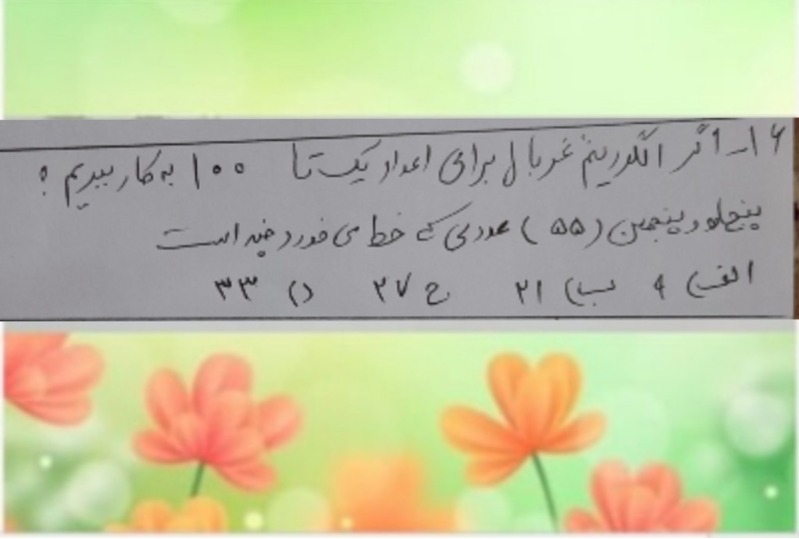 ۱۶ـ اگر الگوریتم غربال برای اعداد یک تا ۱۰۰ به کار ببریم :
پنجاه و پنجمین (۵۵) عددی که خط می خورد چند است
الف) ۹ ب) ۲۱ ج ۲۷ د) ۳۳